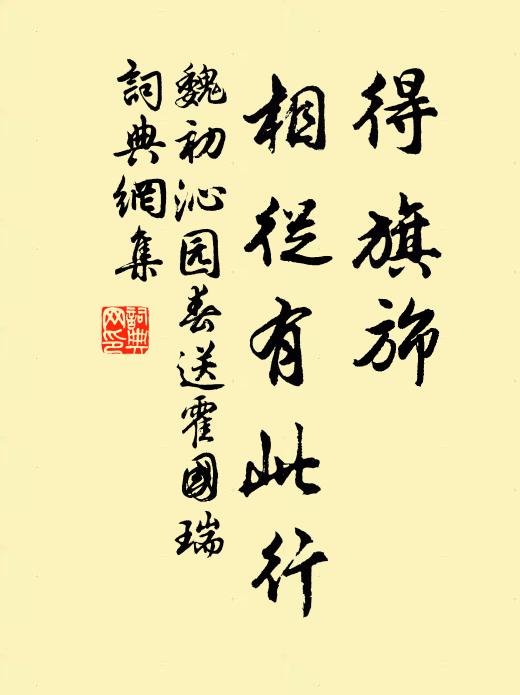 得旗旆
相從有此行
魏初沁园春送霍國瑞
詞典網集
詞典網印